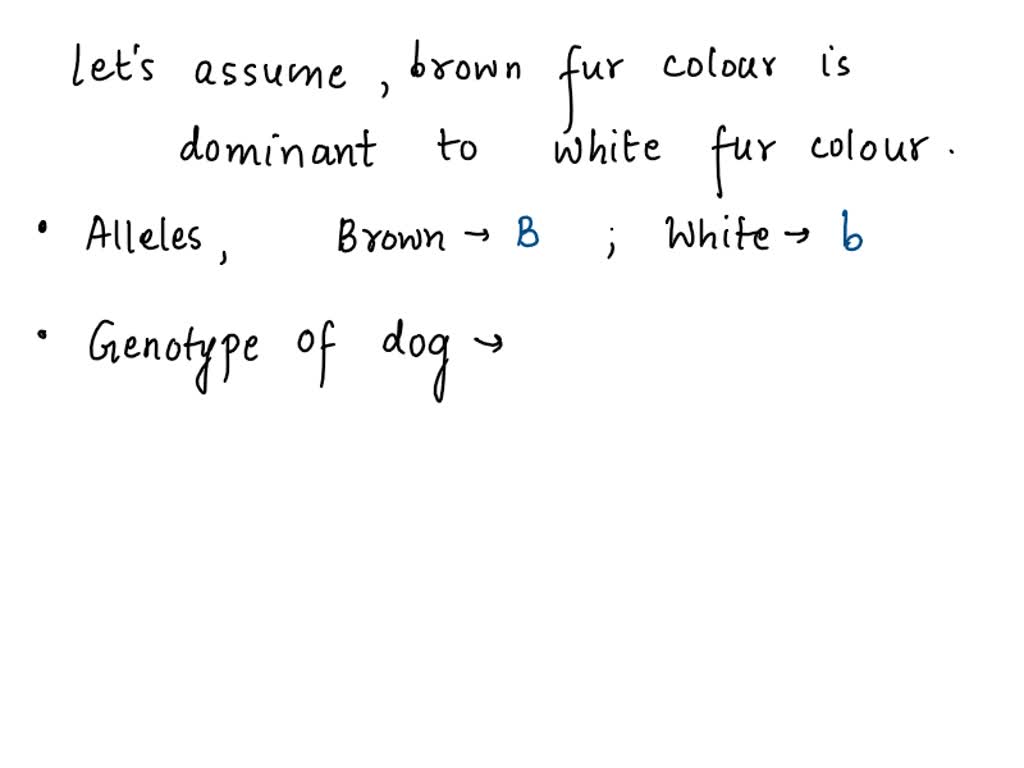 Let's assume, brown fur colour is
dominant to white fur colour.
• Alleles, Brown → B ; White → b
• Genotype of dog →